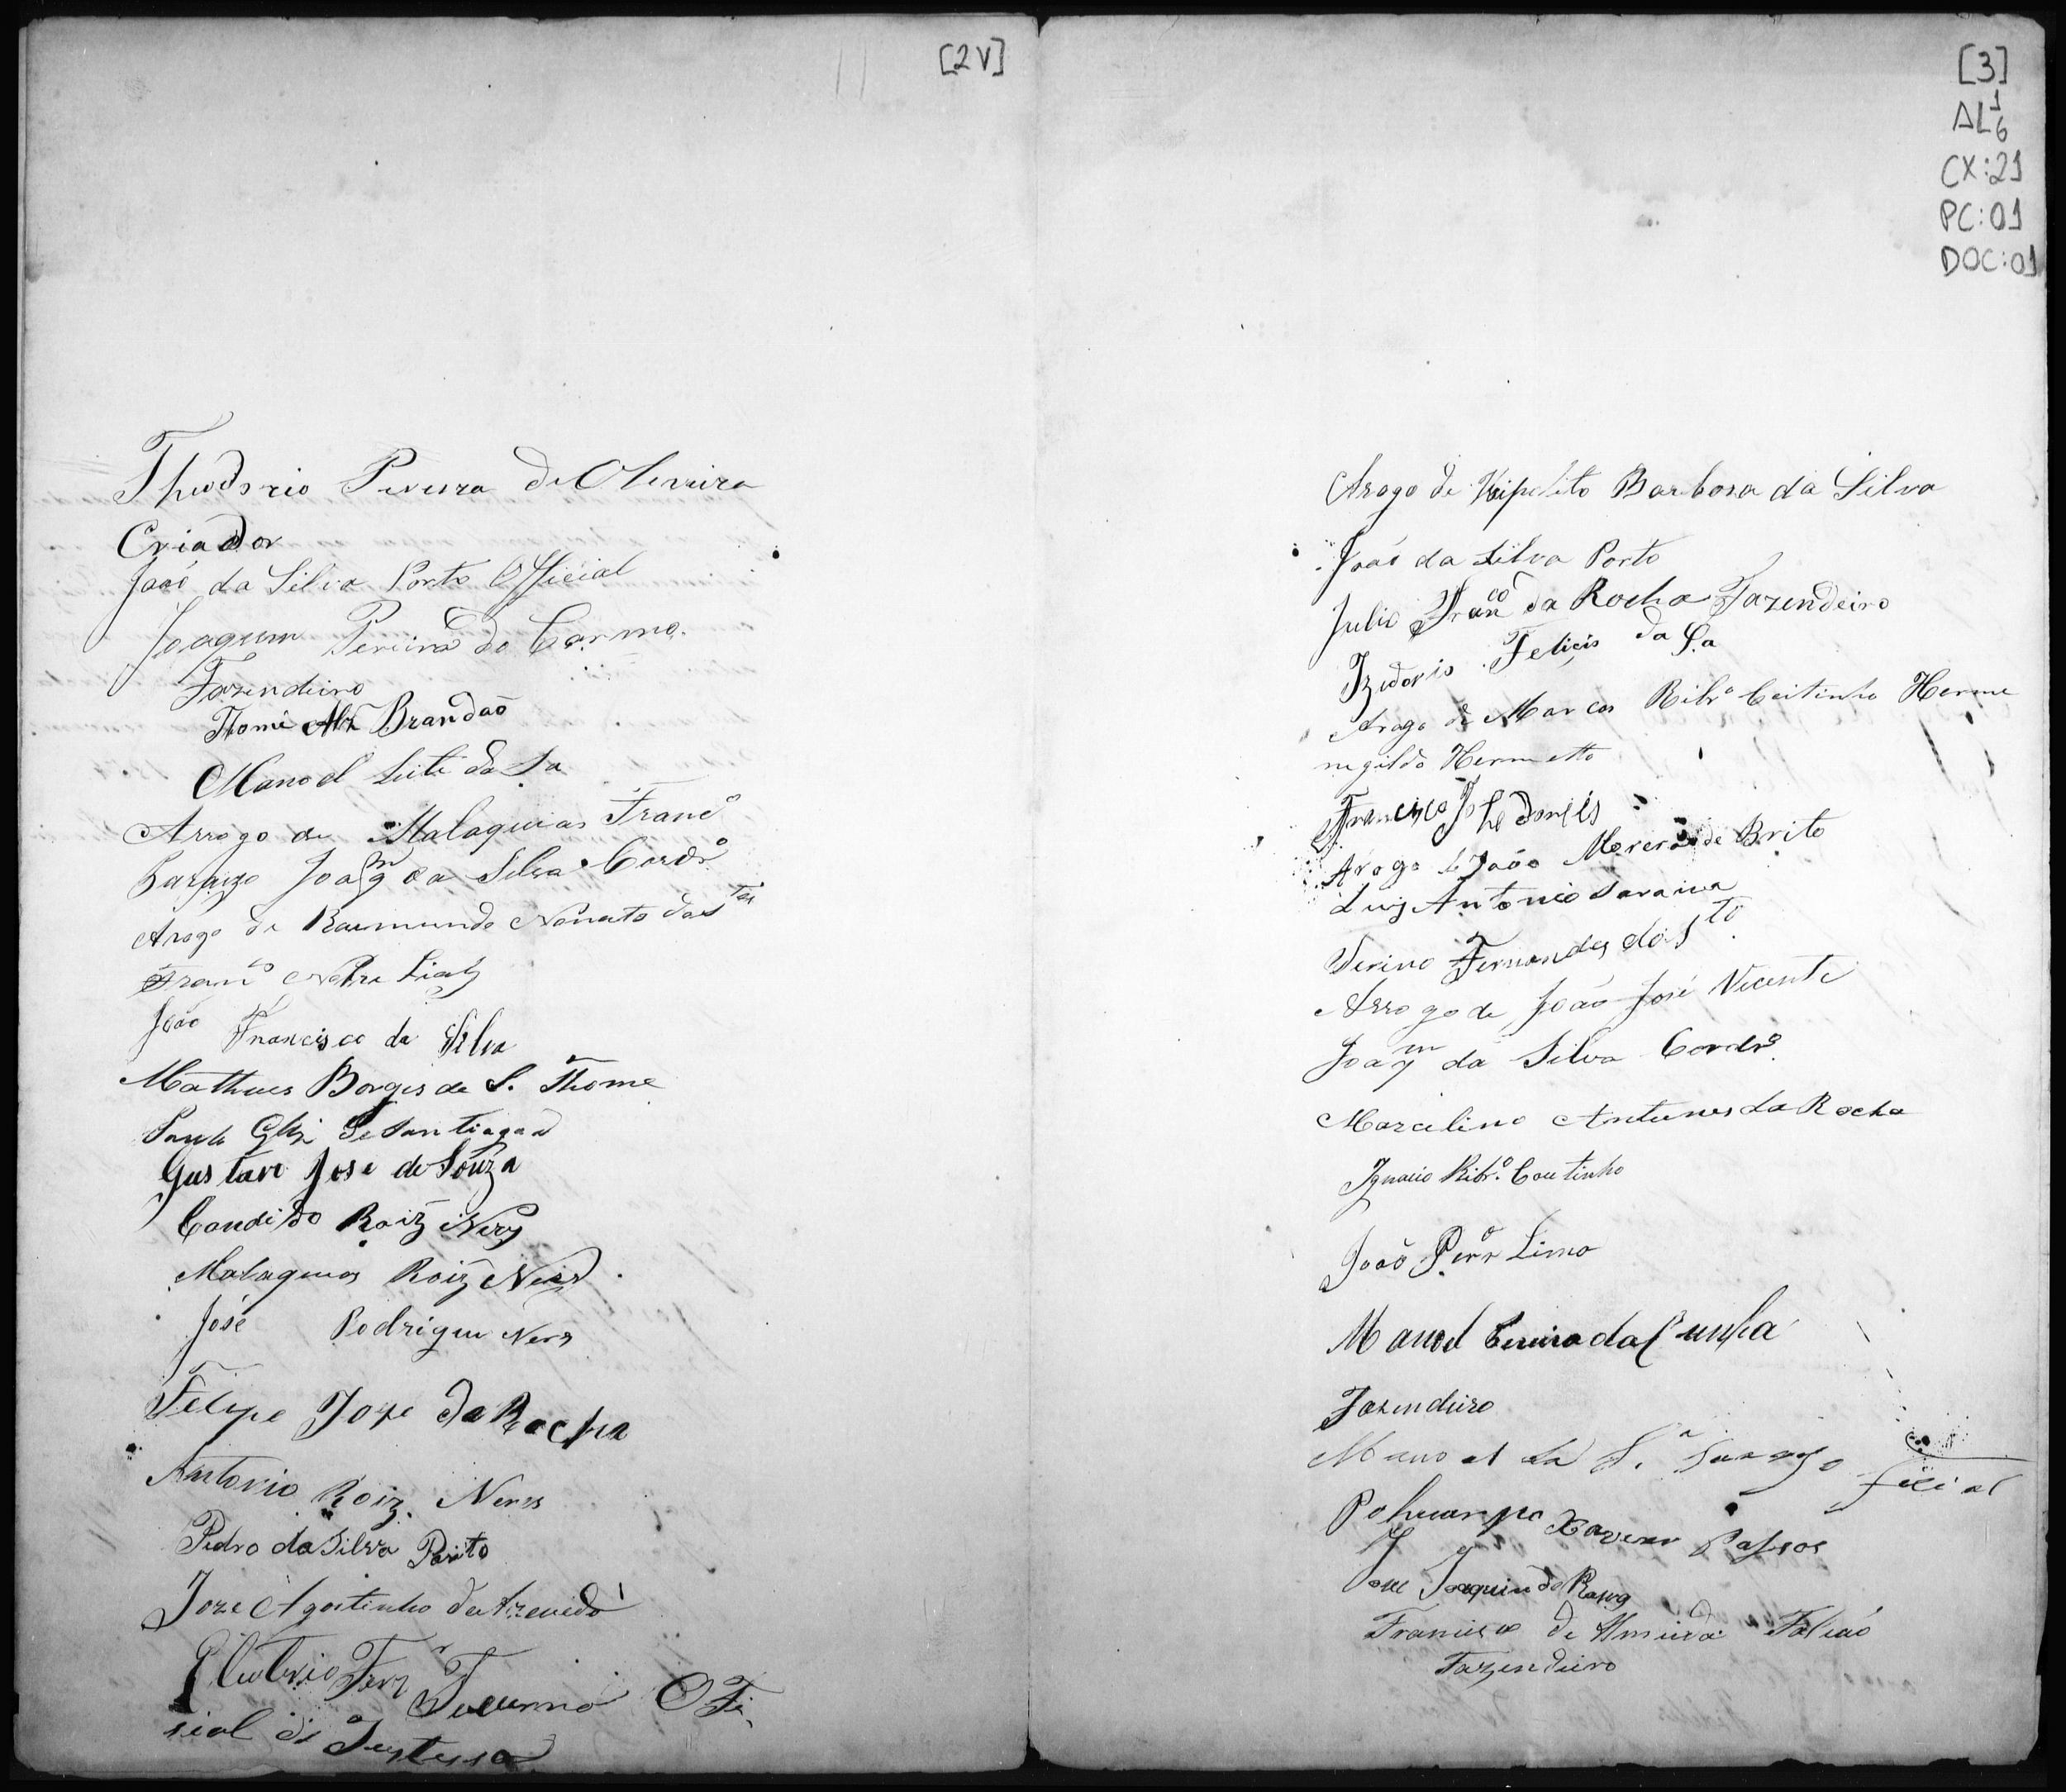 [2V]
Theodorio Pereira de Oliveira
Criador
João da Silva Porto Official
Joaquim Pereira do Carmo.
Fazendeiro
Thome Alz Brandaõ
Manoel Leite da Sa
Arrogo de Malaquias Franc.º
Joaqm da Silva Cordrº
Arogo de Raimundo Nonato dos
Franco
João Francisco da Silva
Matheus Borges de S. Thome
Santiago
Gustavo Jose de Souza
Candido Roiz Nery
Malaquias Roiz Neris
José Rodrigues Nerys
Felipe Joze da Rocha
Antonio Roiz. Nerys
Pedro da Silva Porto
Joze Agostinho de Azevedo
Ferz OFi
sial de Justissa
[3]
AL1
6
CX:21
PC:01
DOC:01
Arogo de Hipolito Barbosa da Silva
João da Silva Porto
Julio Franco da Rocha Fazendeiro
Izidorio Felicis da Sa
Arogo de Marcos Ribrº Coitinho Herme
negildo Hermetto
Francisco
Arogo de João Morera de Brito
Luis Antonio Saraiva
Serino Fernandes dos Sto
Arrogo de João José Vicente
Joaqm da Silva Cordrº.
Marcelino Antunes da Rocha
Ignacio Ribrº. Coutinho
João Perª Lima
Manoel Pereira da Cunha
Fazendeiro
Manoel da Sª
Xavier Passos
Jose Joaquim da
Francisco de Almeida Falcaõ
Fazendeiro